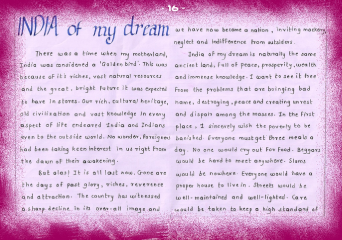 16
INDIA of my dream
There was a time when my motherland,
India was considered a 'Golden bird'. This was
because of it's riches, vast natural resources
and the great, bright future it was expected
to have in stores. Our rich, cultural heritage,
old civilization and vast knowledge in every
aspect of life endeared India and Indians
even to the outside world. No wonder, foreigners
had been taking interest in us right from
the dawn of their awakening.
But alas! It is all last now. Gone are
the days of past glory, riches, reverence
and attraction. The country has witnessed
a sharp decline in its over-all image and
we have now become a nation, inviting mockery,
neglect and indifference from outsiders.
India of my dream is naturally the same
ancient land, full of peace, prosperity, wealth
and immense knowledge. I want to see it free
from the problems that are bringing bad
name, destroying, peace and creating unrest
and dispair among the masses. In the first
place, I sincerely wish the poverty to be
banished. Everyone must get three meals a
day. No one would cry out for food. Beggars
would be hard to meet anywhere. Slums
would be nowhere. Everyone would have a
proper house to live in. Streets would be
well-maintained and well-lighted. Care
would be taken to keep a high standard of